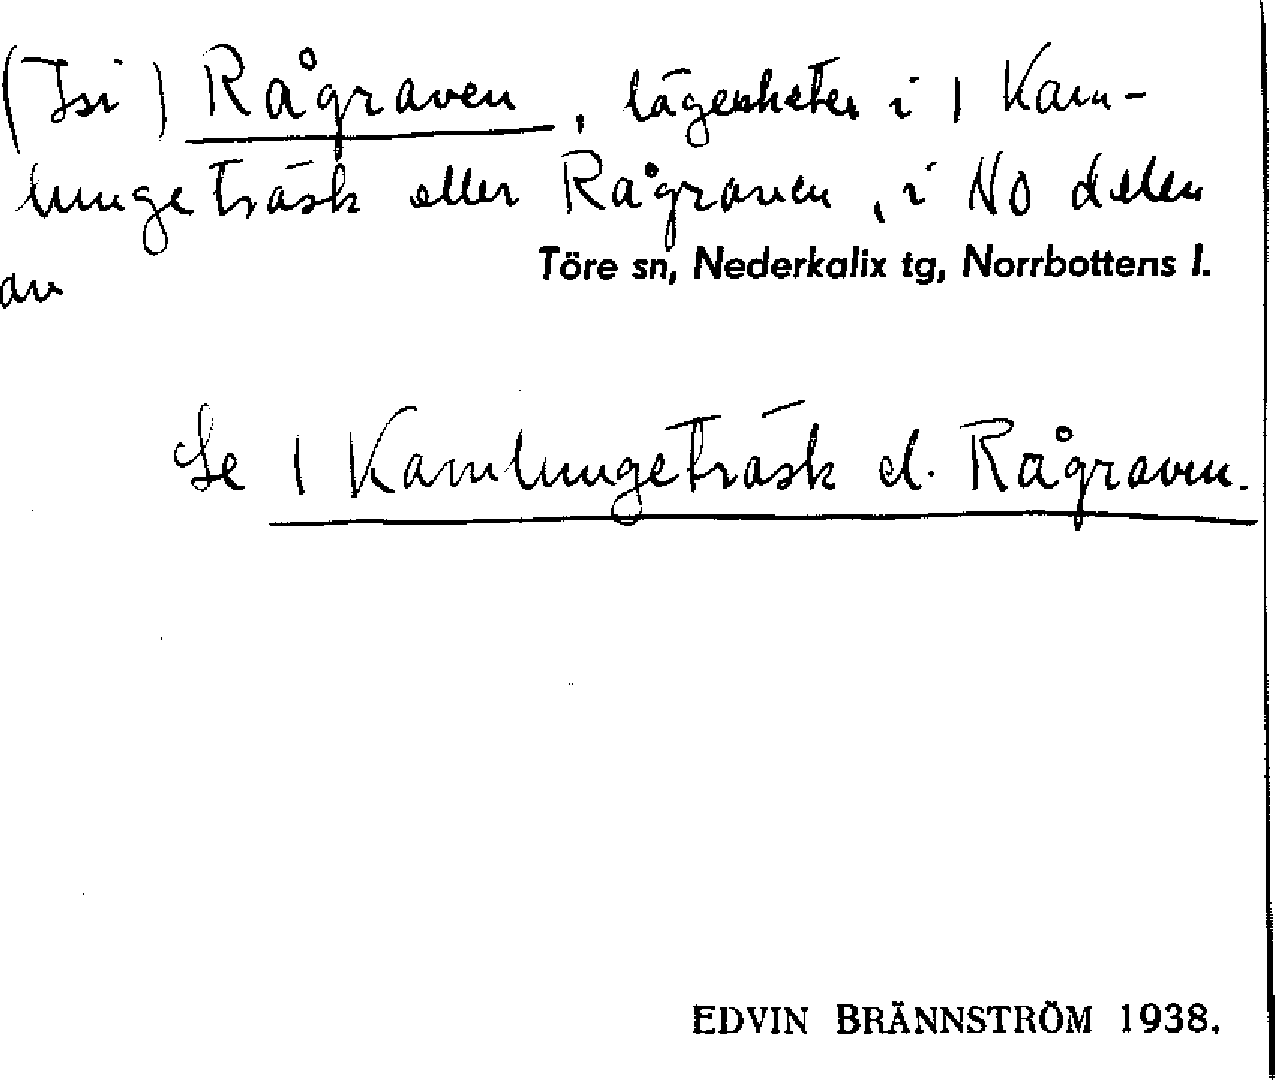 (Isi) Rågraven, lägenheter i 1 Kam-
lungeträsk eller Rågraven, i NO delen
av
Töre sn, Nederkalix tg, Norrbottens l.
Se 1 Kamlungeträsk el. Rågraven.
EDVIN BRÄNNSTRÖM 1938.